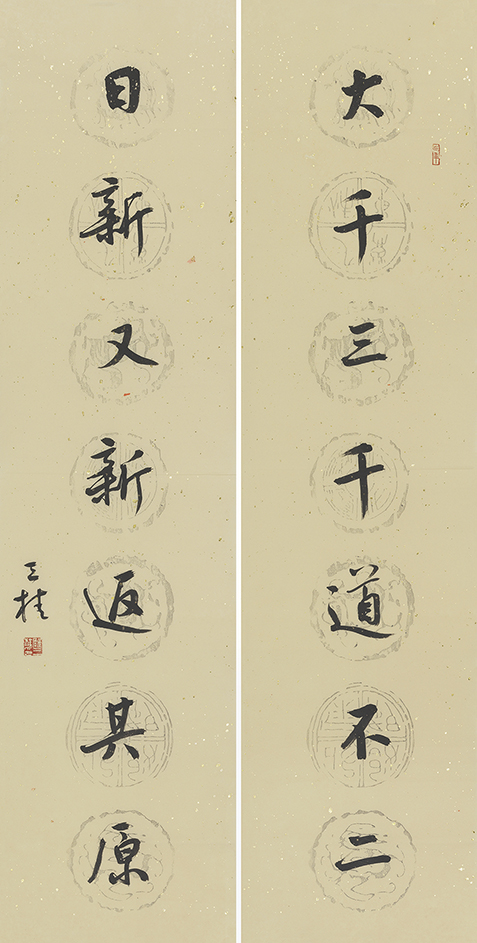 大千三千道不二
日新又新返其原